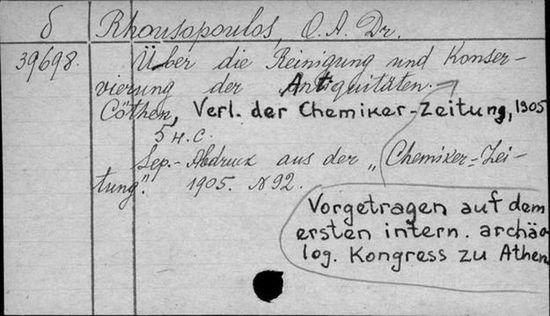 δ Rhousopoulos, O. A. Dr.
39698. Über die Reinigung und Konser-
vierung der Antiquitäten.
Cöthen, Verl. der Chemiker-Zeitung, 1905
5 н.с.
Sep.-Abdruck aus der „Chemiker-Zei-
tung". 1905. N 92.
Vorgetragen auf dem
ersten intern. archäo
log. Kongress zu Athen